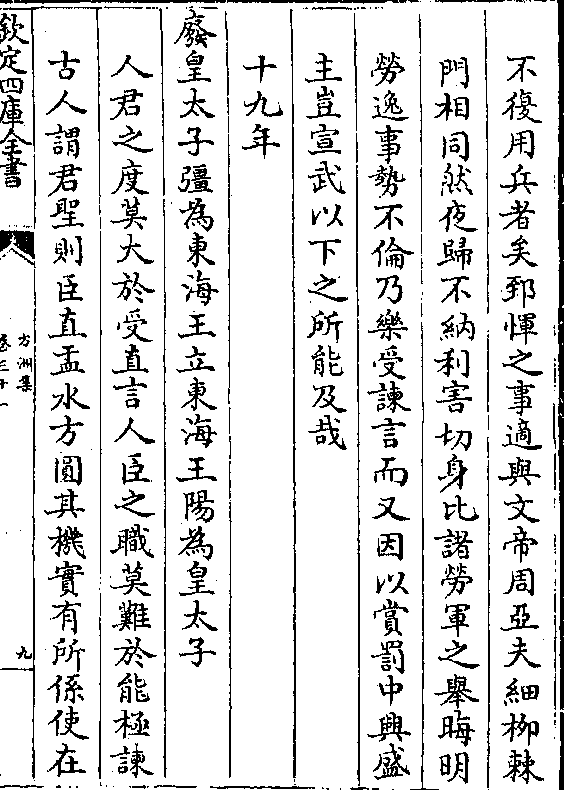 不復用兵者矣郅惲之事適與文帝周亞夫細柳棘
門相同然夜歸不納利害切身比諸勞軍之舉晦明
勞逸事勢不倫乃樂受諫言而又因以賞罰中興盛
主豈宣武以下之所能及哉
十九年
廢皇太子彊為東海王立東海王陽為皇太子
人君之度莫大於受直言人臣之職莫難於能極諫
古人謂君聖則臣直盂水方圓其機實有所係使在
欽定四庫全書
方洲集
卷三十一
九